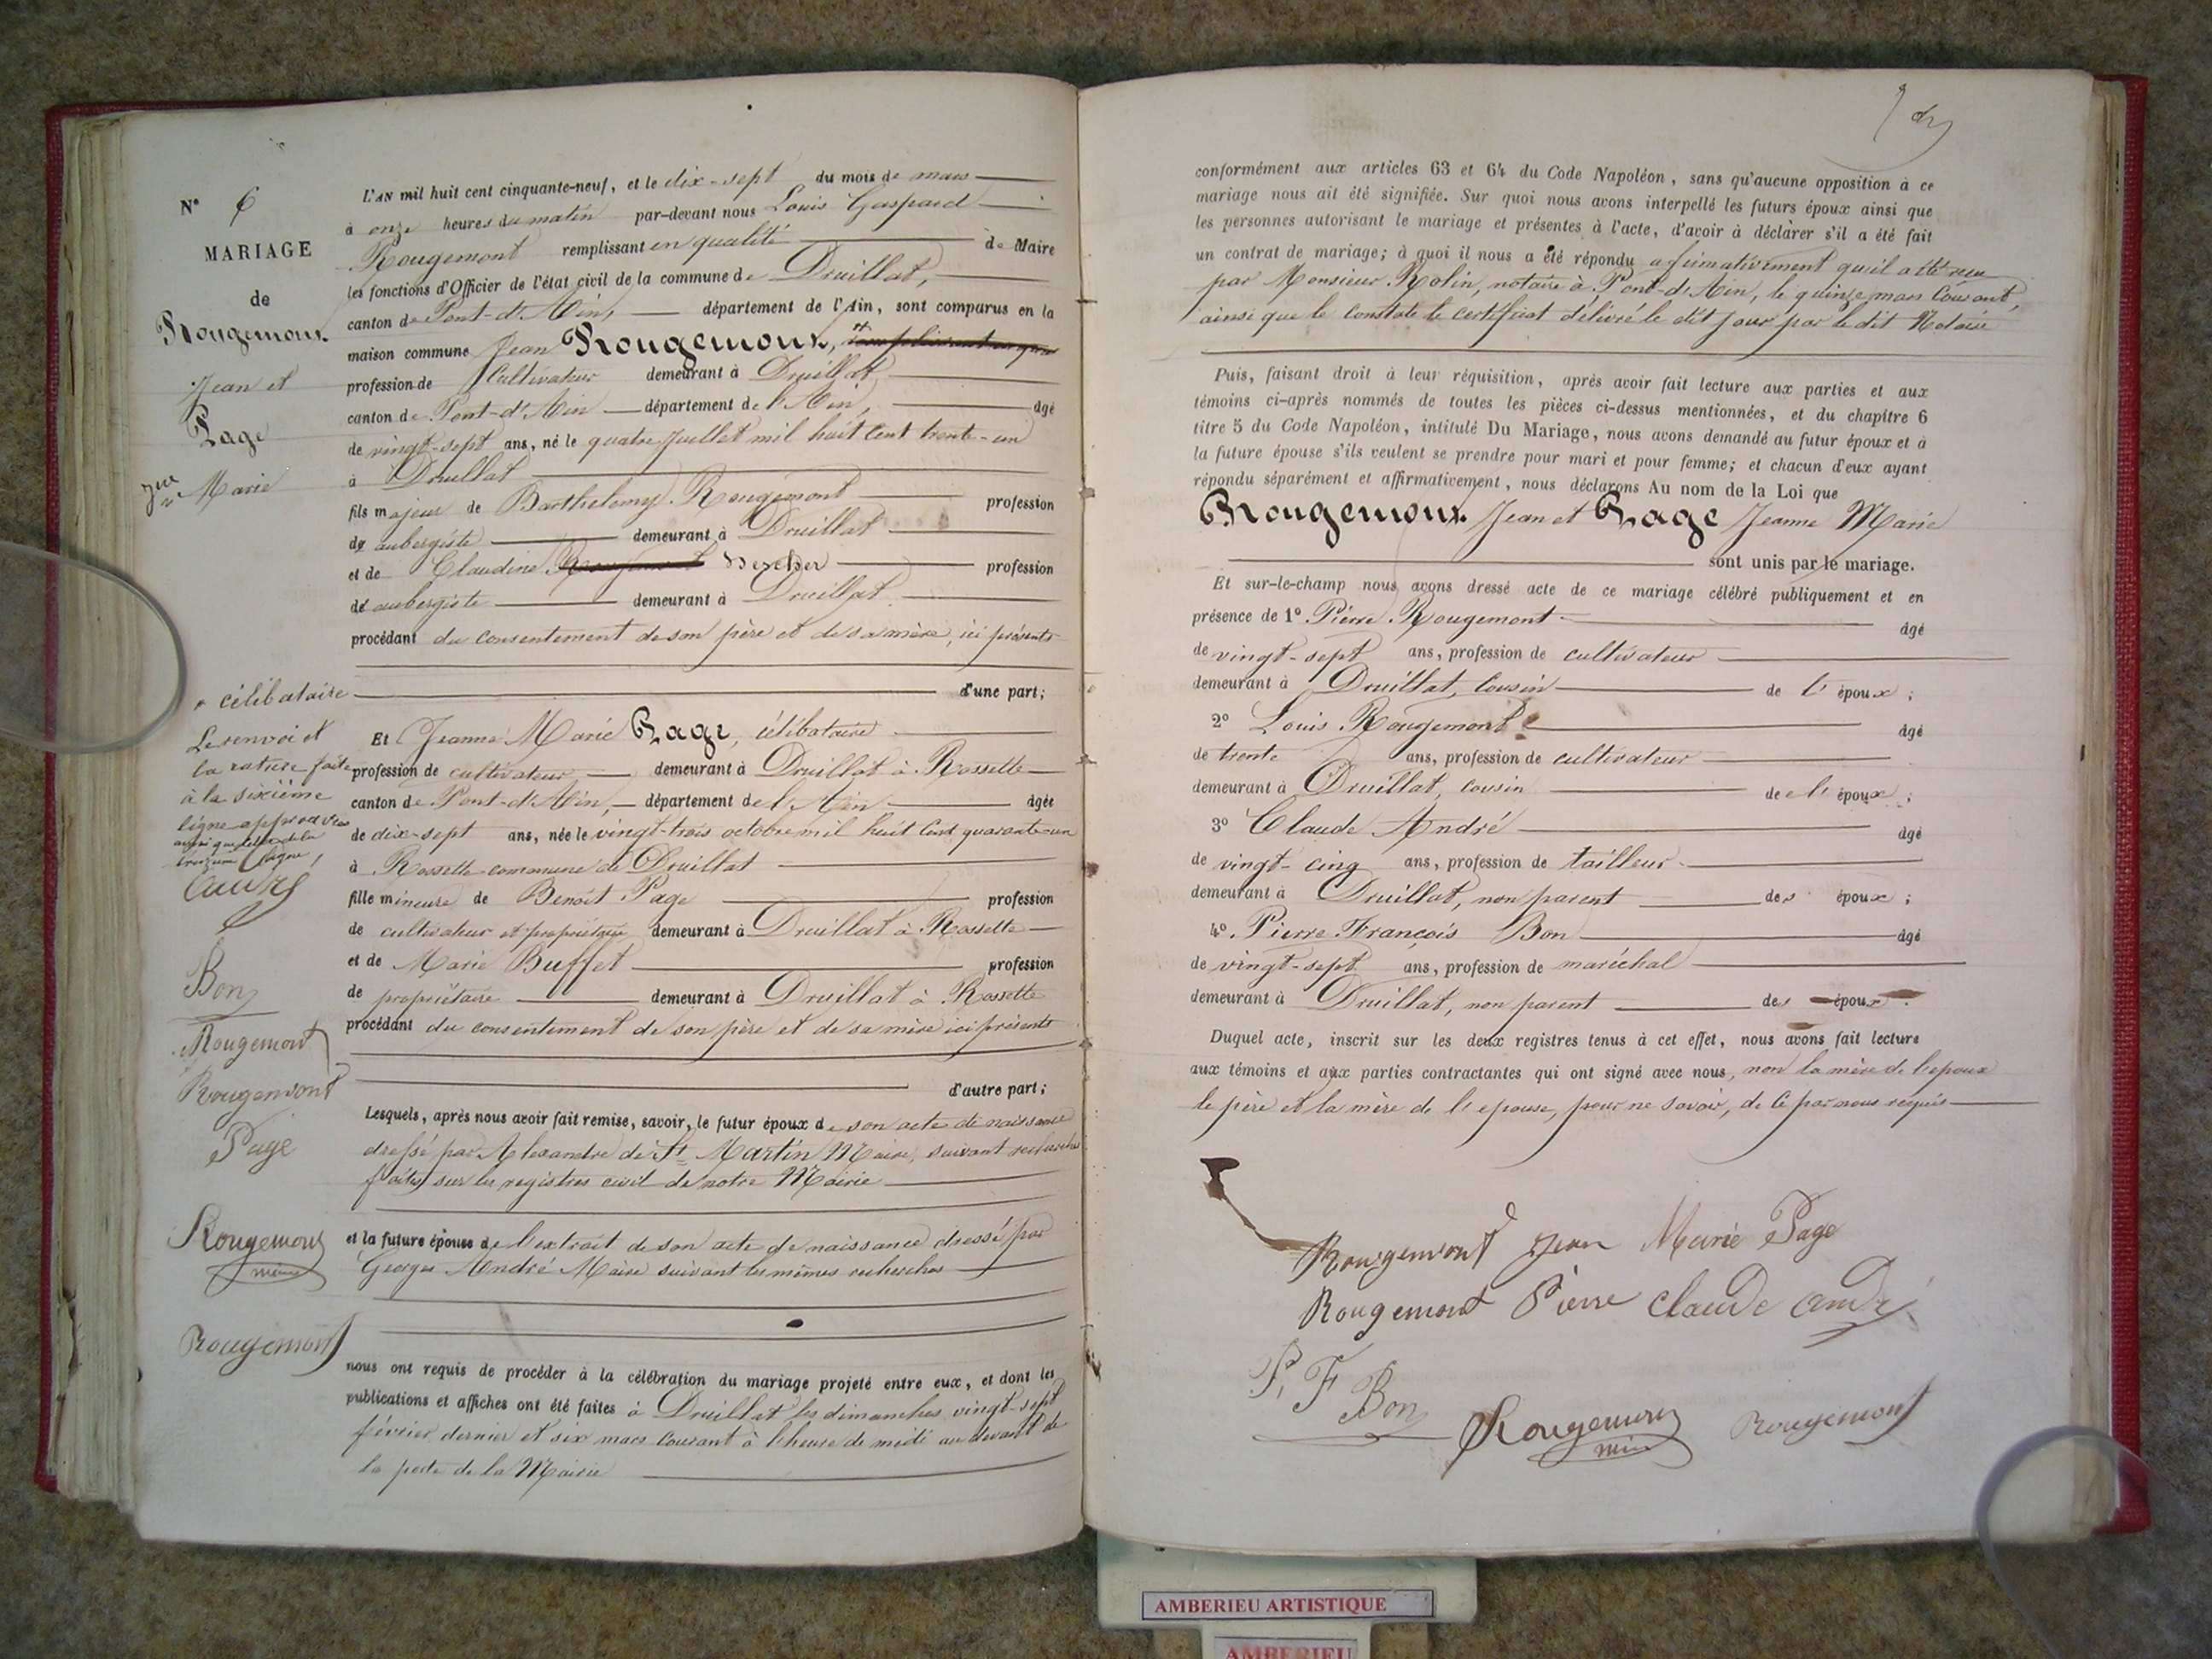 N° 6
MARIAGE
de
Rougemont
Jean et
Page
Jne Marie
L'AN mil huit cent cinquante-neuf, et le dix-sept du mois de mars
à onze heures du matin par-devant nous Louis Gaspard
Rougemont remplissant en qualité de Maire
les fonctions d'Officier de l'état civil de la commune de Druillat,
canton de Pont-d'Ain, département de l'Ain, sont comparus en la
maison commune Jean Rougemont,
profession de Cultivateur demeurant à Druillat
canton de Pont-d'Ain département de l'Ain, âgé
de vingt-sept ans, né le quatre Juillet mil huit cent trente-un
à Druillat
fils majeur de Barthelemy Rougemont profession
de aubergiste demeurant à Druillat
et de Claudine Rougemont profession
de aubergiste demeurant à Druillat
procédant du consentement de son père et de sa mère, ici présents
" célibataire
d'une part;
Le renvoi et
la rature faite
à la sixième
ligne approuvés
ainsi que celle de la
treizième ligne,
Bon
Rougemont
Rougemont
Page
Rougemont
maire
Rougemont
Et Jeanne Marie Page, célibataire
profession de cultivateur, demeurant à Druillat à Rossette
canton de Pont-d'Ain, département de l'Ain âgée
de dix-sept ans, née le vingt-trois octobre mil huit cent quarante-un
à Rossette commune de Druillat
fille mineure de Benoit Page profession
de cultivateur et propriétaire demeurant à Druillat à Rossette
et de Marie Buffet profession
de propriétaire demeurant à Druillat à Rossette
procédant du consentement de son père et de sa mère ici présents
d'autre part;
Lesquels, après nous avoir fait remise, savoir, le futur époux de son acte de naissance
dressé par Alexandre de St Martin Maire, suivant recherches
faites sur les registres civil de notre Mairie
et la future épouse de l'extrait de son acte de naissance dressé par
Georges André Maire suivant les mêmes recherches
nous ont requis de procéder à la célébration du mariage projeté entre eux, et dont les
publications et affiches ont été faites à Druillat les dimanches vingt-sept
février dernier et six mars courant à l'heure de midi au devant de
la porte de la Mairie
conformément aux articles 63 et 64 du Code Napoléon, sans qu'aucune opposition à ce
mariage nous ait été signifiée. Sur quoi nous avons interpellé les futurs époux ainsi que
les personnes autorisant le mariage et présentes à l'acte, d'avoir à déclarer s'il a été fait
un contrat de mariage; à quoi il nous a été répondu afirmativement qu'il a été reçu
par Monsieur Rolin, notaire à Pont-d'Ain, le quinze mars Courant,
ainsi que le constate le certificat délivré le dit jour par le dit Notaire
Puis, faisant droit à leur réquisition, après avoir fait lecture aux parties et aux
témoins ci-après nommés de toutes les pièces ci-dessus mentionnées, et du chapitre 6
titre 5 du Code Napoléon, intitulé Du Mariage, nous avons demandé au futur époux et à
la future épouse s'ils veulent se prendre pour mari et pour femme; et chacun d'eux ayant
répondu séparément et affirmativement, nous déclarons Au nom de la Loi que
Rougemont Jean et Page Jeanne Marie
sont unis par le mariage.
Et sur-le-champ nous avons dressé acte de ce mariage célébré publiquement et en
présence de 1° Pierre Rougemont âgé
de vingt-sept ans, profession de cultivateur
demeurant à Druillat, cousin de l'époux;
2° Louis Rougemont âgé
de trente ans, profession de cultivateur
demeurant à Druillat, cousin de l'époux;
3° Claude André âgé
de vingt-cinq ans, profession de tailleur
demeurant à Druillat, non parent des époux;
4° Pierre François Bon âgé
de vingt-sept ans, profession de maréchal
demeurant à Druillat, non parent des époux.
Duquel acte, inscrit sur les deux registres tenus à cet effet, nous avons fait lecture
aux témoins et aux parties contractantes qui ont signé avec nous, non la mère de l'epoux
le père et la mère de l'epouse, pour ne savoir, de ce par nous requis
Rougemont Jean Marie Page
Rougemont Pierre Claude André
P. F Bon Rougemont Rougemont
maire
AMBERIEU ARTISTIQUE
AMBERIEU